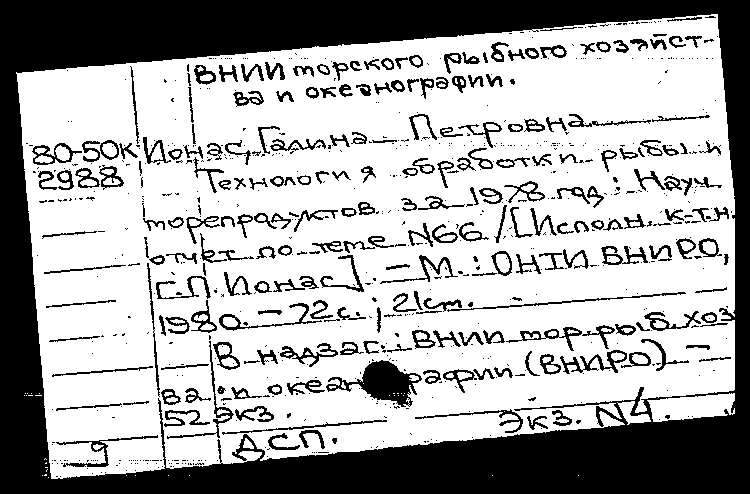 ВНИИ морского рыбного хозяйст-
ва и океанографии.
80-50к Ионас, Галина Петровна.
2988 Технология обработки рыбы и
морепродуктов за 1978 год: Науч.
отчет по теме N66/[Исполн. к.т.н.
Г.П. Ионас]. - М.: ОНТИ ВНИРО,
1980. - 72с.; 21см.
В надзаг.: ВНИИ мор. рыб. хоз
ва и океанографии (ВНИРО) -
52 экз.
ДСП. Экз. N4.
9